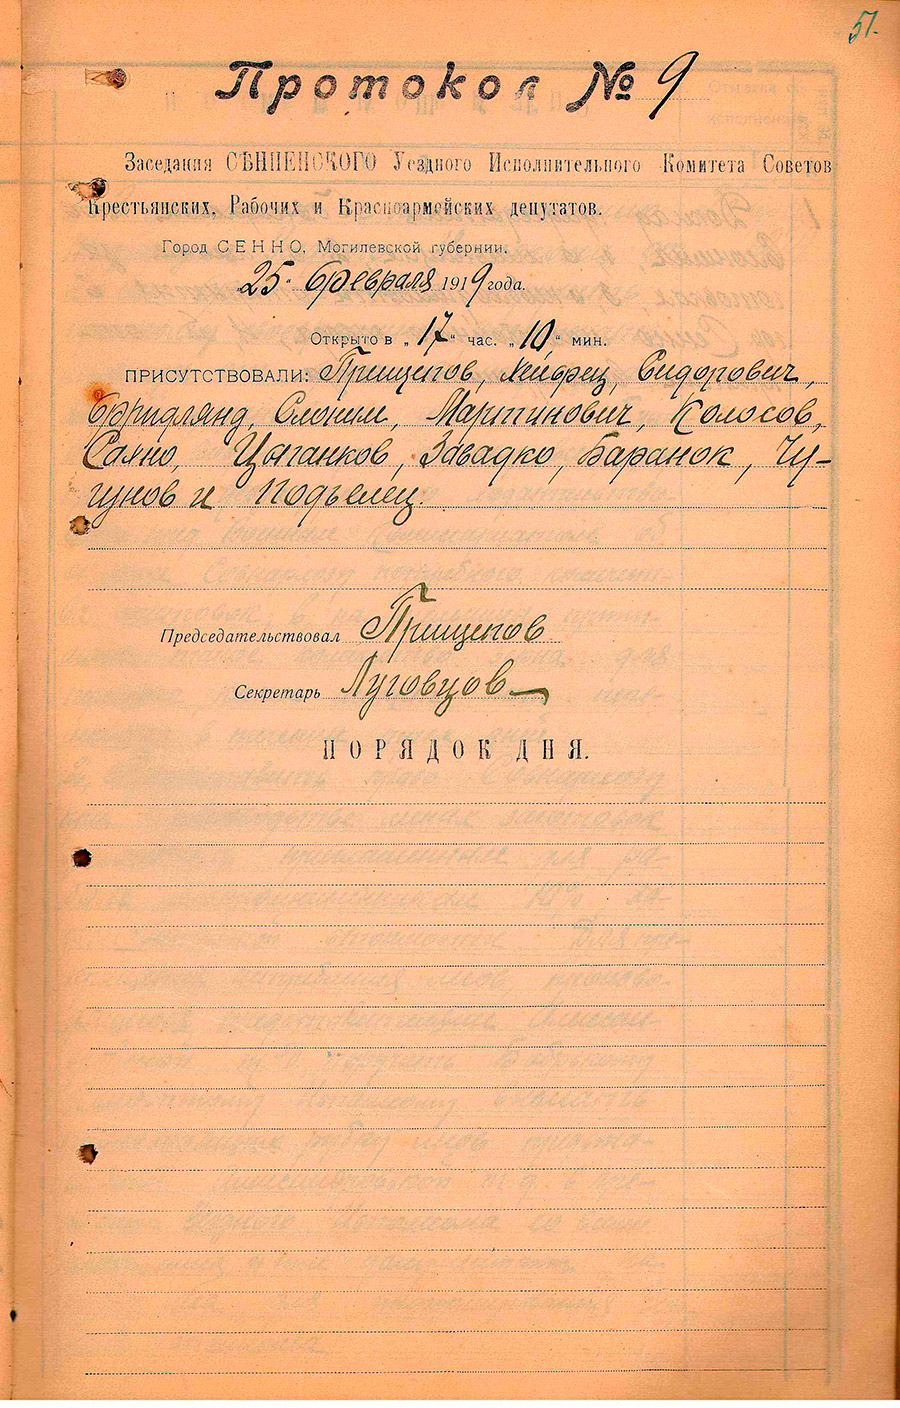 51.
Протокол № 9
Заседания СѢННЕНСКОГО Уездного Исполнительного Комитета Советов
Крестьянских, Рабочих и Красноармейских депутатов.
Город СЕННО, Могилевской губернии.
25 " февраля 1919 года.
Открыто в „ 17 " час. „ 10 " мин.
ПРИСУТСТВОВАЛИ: Прищепов, Хейфец, Сидорович,
Фридлянд, Слоним, Мартинович, Колосов,
Цыганков, Завадко, Баранок, Чу-
гунов и Подъелец.
Председательствовал Прищепов
Секретарь Луговцов
ПОРЯДОК ДНЯ.